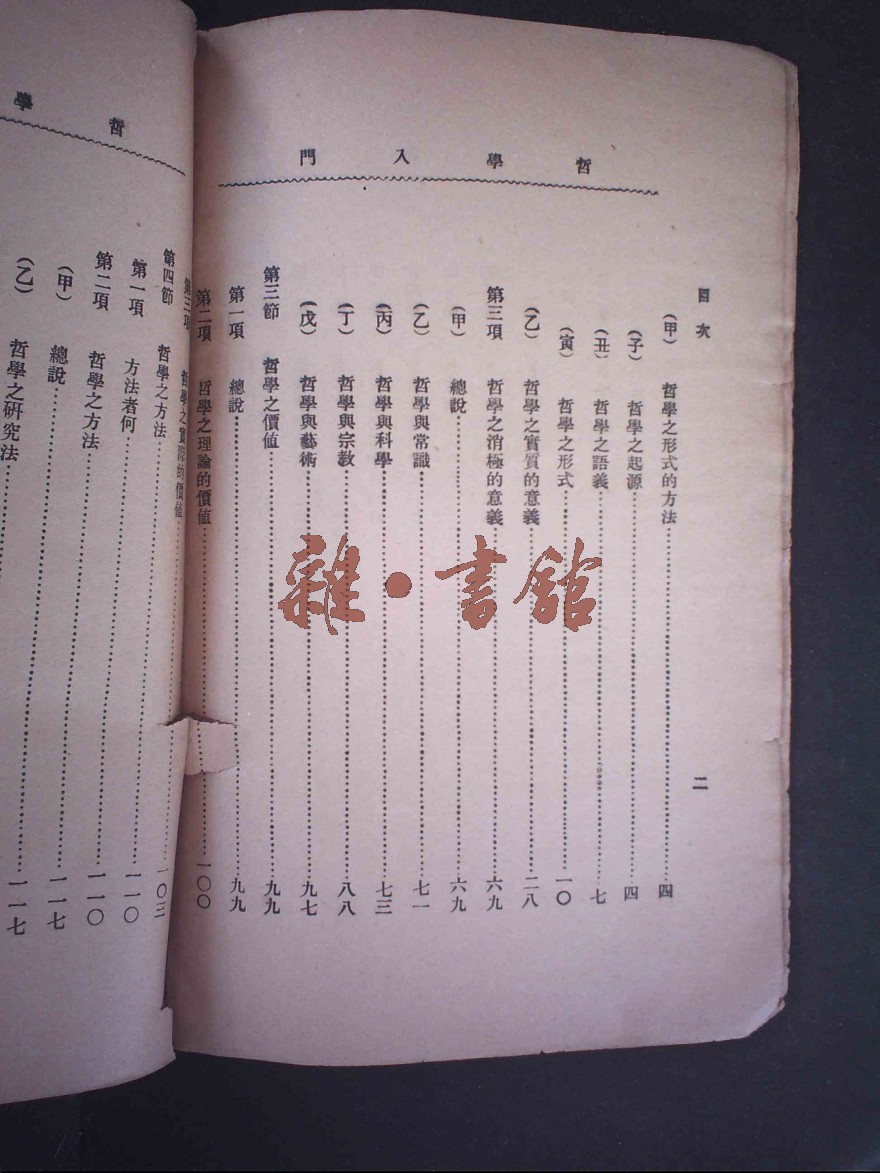 哲學入門
目次 二
(甲) 哲學之形式的方法……四
(子) 哲學之起源……四
(丑) 哲學之語義……七
(寅) 哲學之形式……一〇
(乙) 哲學之實質的意義……二八
第三項 哲學之消極的意義……六九
(甲) 總說……六九
(乙) 哲學與常識……七一
(丙) 哲學與科學……七三
(丁) 哲學與宗教……八八
(戊) 哲學與藝術……九七
第三節 哲學之價值……九九
第一項 總說……九九
第二項 哲學之理論的價值……一〇〇
哲學
第三項 哲學之實際的價值……
第四節 哲學之方法……一〇三
第一項 方法者何……一一〇
第二項 哲學之方法……一一〇
(甲) 總說……一一七
(乙) 哲學之研究法……一一七
雜·書館